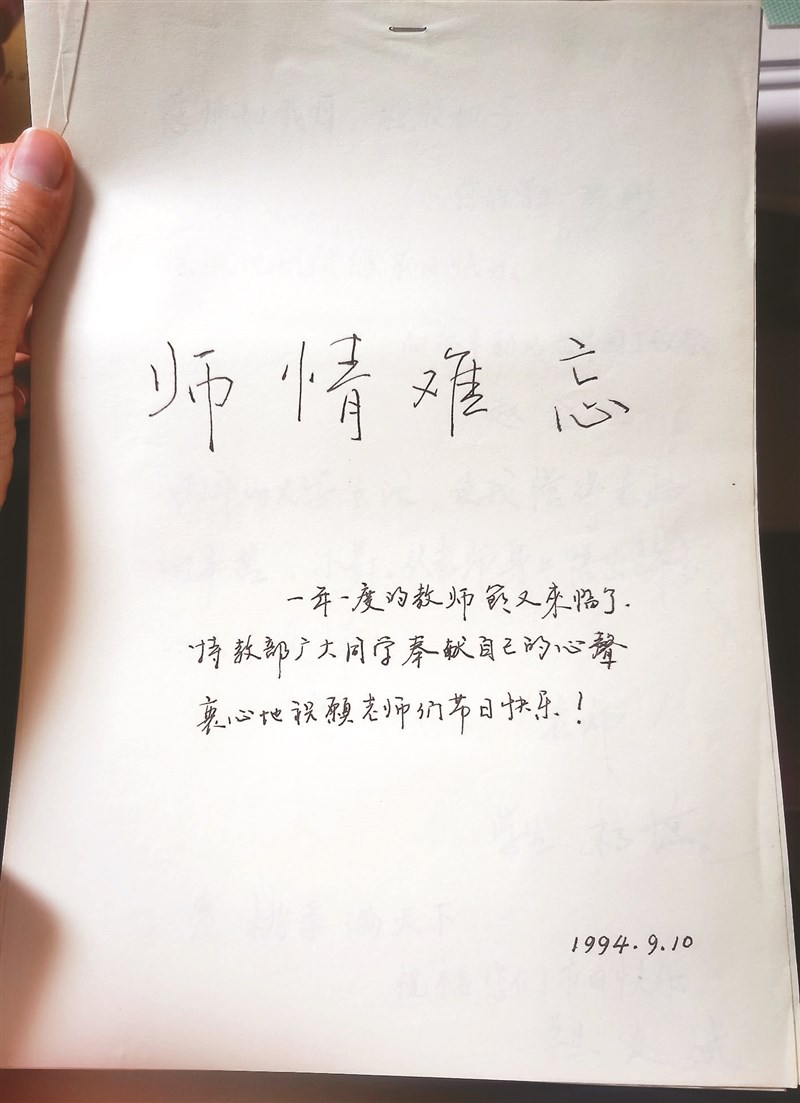 师情难忘
一年一度的教师节又来临了.
特教部广大同学奉献自己的心聲
衷心地祝愿老师们节日快乐！
1994.9.10